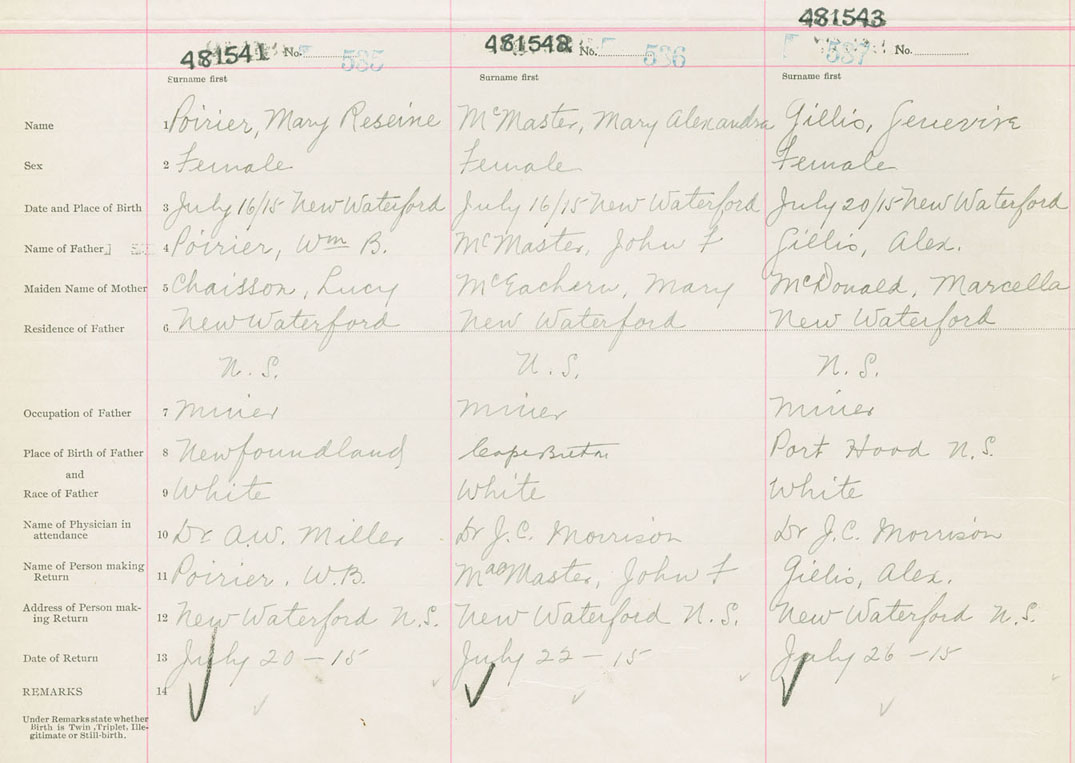 481541 No. 535 481542 No. 536 481543 537 No.
Surname first Surname first Surname first
Name 1 Poirier, Mary Reseine McMaster, Mary Alexandra Gillis, Genevive
Sex 2 Female Female Female
Date and Place of Birth 3 July 16/15 New Waterford July 16/15 New Waterford July 20/15 New Waterford
Name of Father 4 Poirier, Wm B. McMaster, John F Gillis, Alex.
Maiden Name of Mother 5 Chaisson, Lucy McEachern, Mary McDonald, Marcella
Residence of Father 6 New Waterford New Waterford New Waterford
N.S. N.S. N.S.
Occupation of Father 7 Miner Miner Miner
Place of Birth of Father 8 Newfoundland Cape Breton Port Hood N.S.
and
Race of Father 9 White White White
Name of Physician in
attendance 10 Dr A.W. Miller Dr J.C. Morrison Dr J.C. Morrison
Name of Person making
Return 11 Poirier, W.B. MacMaster, John F Gillis, Alex.
Address of Person mak-
ing Return 12 New Waterford N.S. New Waterford N.S. New Waterford N.S.
Date of Return 13 July 20 - 15 July 22 - 15 July 26 - 15
REMARKS 14
Under Remarks state whether
Birth is Twin, Triplet, Ille-
gitimate or Still-birth.